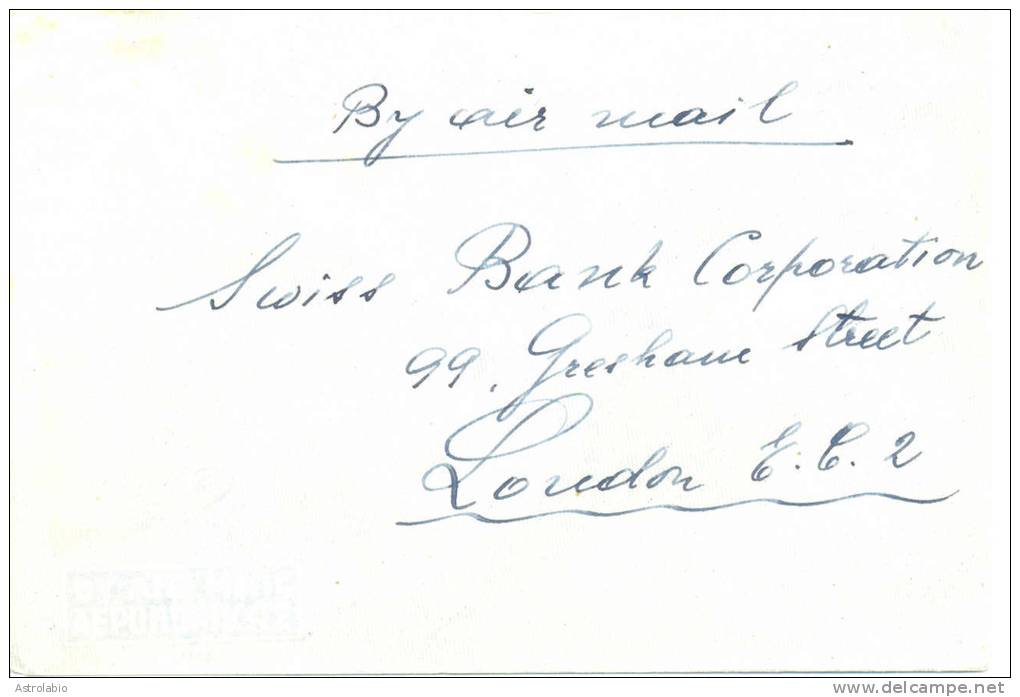 By air mail
Swiss Bank Corporation
99, Gresham Street
London E.C.2
Astrolabio
www.delcampe.net